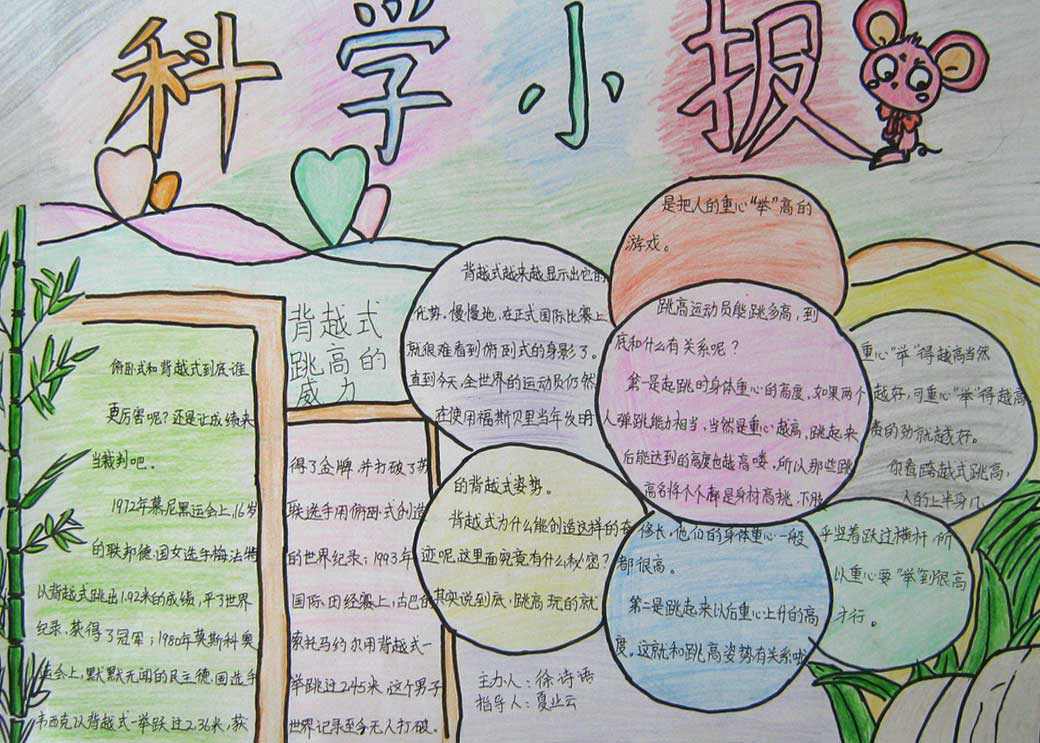 科学小报
背越式
跳高的
威力
俯卧式和背越式到底谁
更厉害呢？还是让成绩来
当裁判吧。
1972年慕尼黑运会上，16岁
的联邦德国女选手梅法特
以背越式跳出1.92米的成绩，平了世界
纪录，获得了冠军；1980年莫斯科奥
运会上，默默无闻的民主德国选手
韦西克以背越式一举跃过2.36米，获
得了金牌并打破了苏
联选手用俯卧式创造
的世界纪录；1993年
国际田经赛上，古巴的
索托马约尔用背越式一
举跳过2.45米，这个男子
世界记录至今无人打破。
背越式越来越显示出它的
优势。慢慢地，在正式国际比赛上
就很难看到俯卧式的身影了。
直到今天，全世界的运动员仍然
在使用福斯贝里当年发明
的背越式姿势。
背越式为什么能创造这样的奇
迹呢，这里面究竟有什么秘密？
其实说到底，跳高玩的就
是把人的重心“举”高的
游戏。
跳高运动员能跳多高，到
底和什么有关系呢？
第一是起跳时身体重心的高度，如果两个
人弹跳能力相当，当然是重心越高，跳起来
后能达到的高度也越高喽。所以那些跳
高名将个个都是身材高挑，下肢
修长，他们的身体重心一般
都很高。
第二是跳起来以后重心上升的高
度，这就和跳高姿势有关系啦
重心“举”得越高当然
越好，可重心“举”得越高
费的劲就越好。
你看跨越式跳高，
人的上半身几
乎竖着跃过横杆，所
以重心要“举”到很高
才行。
主办人：徐诗语
指导人：夏业云